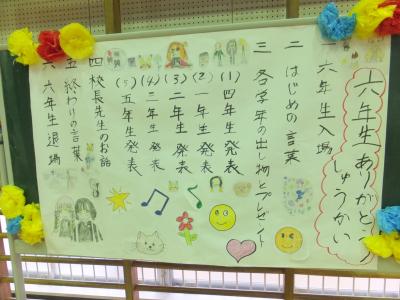 六年生ありがとう
しゅうかい
一 六年生入場
二 はじめの言葉
三 各学年の出し物とプレゼント
(1) 四年生発表
(2) 一年生発表
(3) 二年生発表
(4) 三年生発表
(5) 五年生発表
四 校長先生のお話
五 終わりの言葉
六 六年生退場